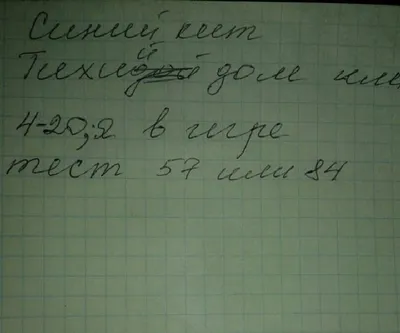 Синий кит
Тихий дом или
4-20, я в игре
тест 57 или 84